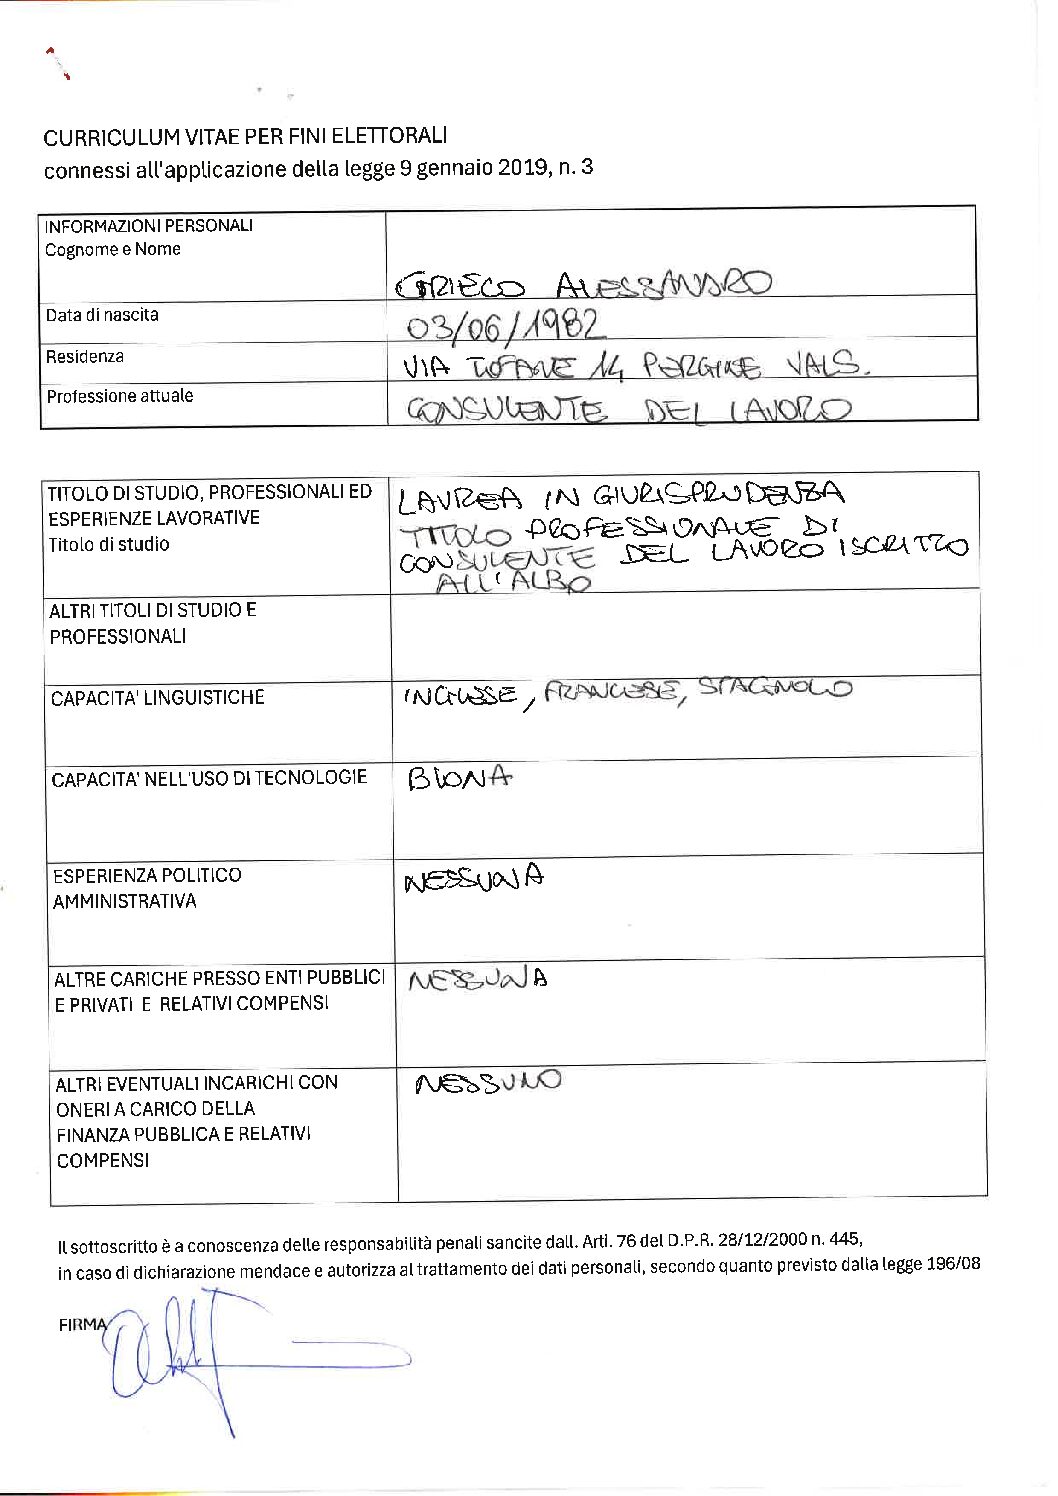 CURRICULUM VITAE PER FINI ELETTORALI
connessi all'applicazione della legge 9 gennaio 2019, n. 3
INFORMAZIONI PERSONALI
Cognome e Nome
GRIECO ALESSANDRO
Data di nascita
03/06/1982
Residenza
VIA TOFANE 14 PERGINE VALS.
Professione attuale
CONSULENTE DEL LAVORO
TITOLO DI STUDIO, PROFESSIONALI ED
ESPERIENZE LAVORATIVE
Titolo di studio
LAUREA IN GIURISPRUDENZA
TITOLO PROFESSIONALE DI
CONSULENTE DEL LAVORO ISCRITTO
ALL'ALBO
ALTRI TITOLI DI STUDIO E
PROFESSIONALI
CAPACITA' LINGUISTICHE
INGLESE, FRANCESE, SPAGNOLO
CAPACITA' NELL'USO DI TECNOLOGIE
BUONA
ESPERIENZA POLITICO
AMMINISTRATIVA
NESSUNA
ALTRE CARICHE PRESSO ENTI PUBBLICI
E PRIVATI E RELATIVI COMPENSI
NESSUNA
ALTRI EVENTUALI INCARICHI CON
ONERI A CARICO DELLA
FINANZA PUBBLICA E RELATIVI
COMPENSI
NESSUNO
Il sottoscritto è a conoscenza delle responsabilità penali sancite dall. Arti. 76 del D.P.R. 28/12/2000 n. 445,
in caso di dichiarazione mendace e autorizza al trattamento dei dati personali, secondo quanto previsto dalla legge 196/08
FIRMA